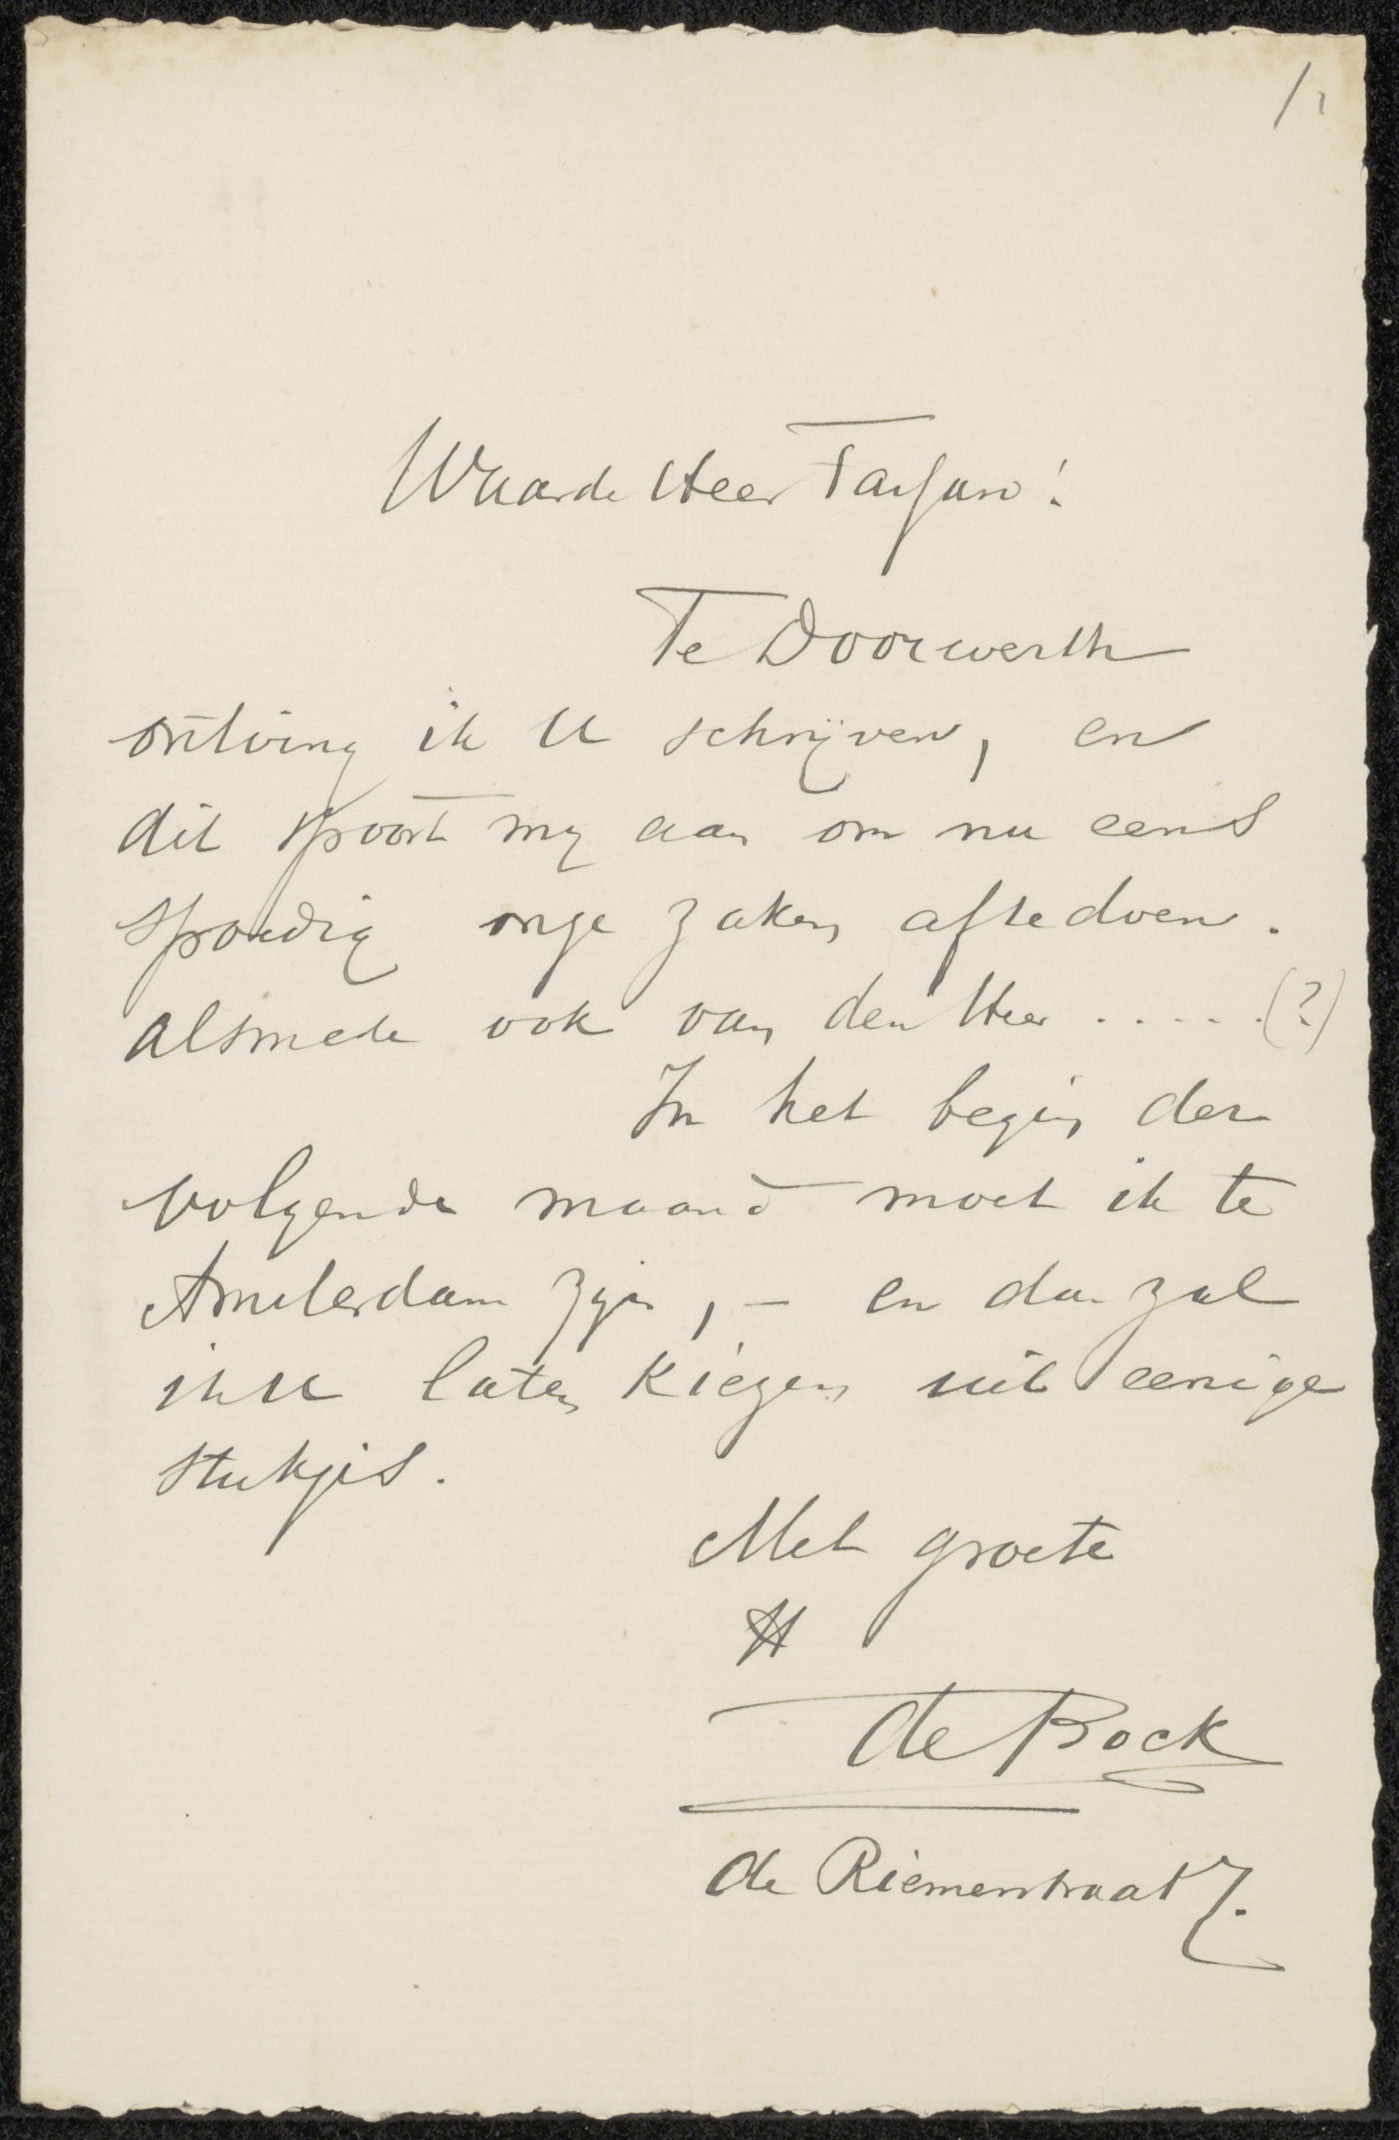 Waarde Heer
Te Doorwerth
ontving ik U schrijven, en
dit spoort my aan om nu eens
spoedig onze zaken aftedoen.
alsmede ook van den Heer ......(?)
In het begin der
volgende maand moet ik te
Amsterdam zyn, - en dan zal
ik U laten kiezen uit eenige
stukjes.
Met groete
de Bock
de Riemerstraat 7.